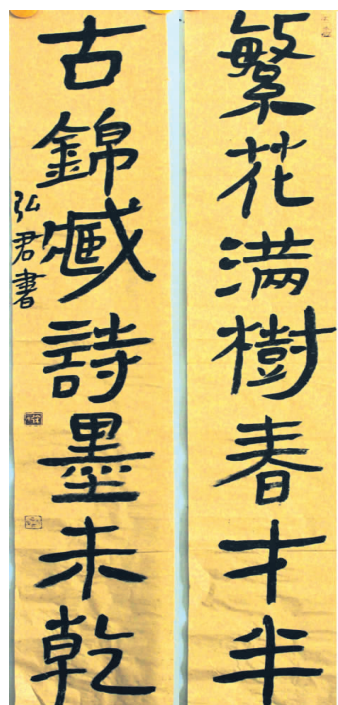 繁花满樹春才半
古錦臧詩墨未乾
弘君書